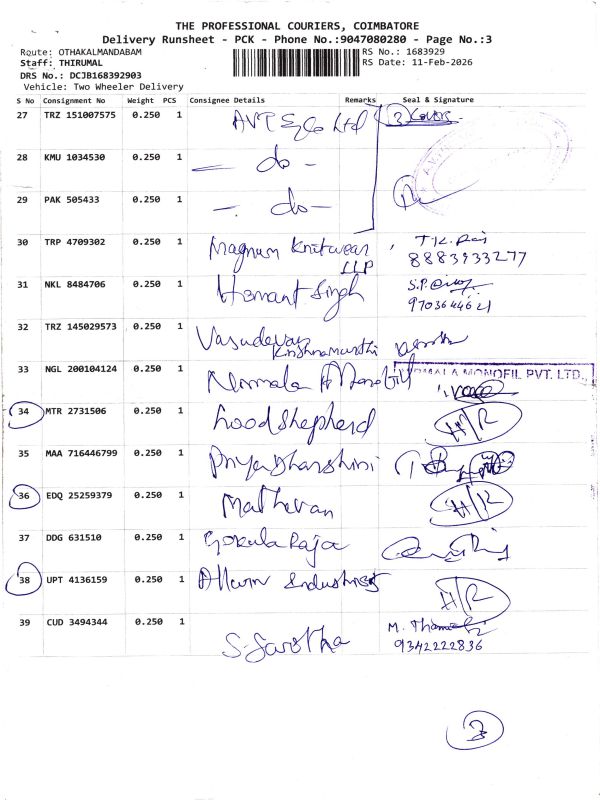 THE PROFESSIONAL COURIERS, COIMBATORE
Delivery Runsheet - PCK - Phone No.:9047080280 - Page No.:3
Route: OTHAKALMANDABAM RS No.: 1683929
Staff: THIRUMAL RS Date: 11-Feb-2026
DRS No.: DCJB168392903
Vehicle: Two Wheeler Delivery
S No Consignment No Weight PCS Consignee Details Remarks Seal & Signature
27 TRZ 151007575 0.250 1 AVT & Co Ltd 3 Covers
28 KMU 1034530 0.250 1 - do -
29 PAK 505433 0.250 1 - do -
30 TRP 4709302 0.250 1 Magnum Knitwear LLP T.K. Raj
8883933277
31 NKL 8484706 0.250 1 Hemant Singh S.P.
9703644621
32 TRZ 145029573 0.250 1 Vasudevan
Krishnamurthi
33 NGL 200104124 0.250 1 Nirmala MONOFIL PVT. LTD.,
34 MTR 2731506 0.250 1 Good Shepherd H/R
35 MAA 716446799 0.250 1 Priyadharshini
36 EDQ 25259379 0.250 1 Mathevan H/R
37 DDG 631510 0.250 1 Gokula Raja
38 UPT 4136159 0.250 1 Allwin Industries H/R
39 CUD 3494344 0.250 1 S. Saritha M.
9342222836
3